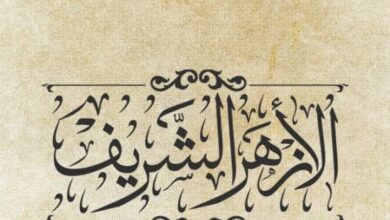 الأزهر الشَّريف